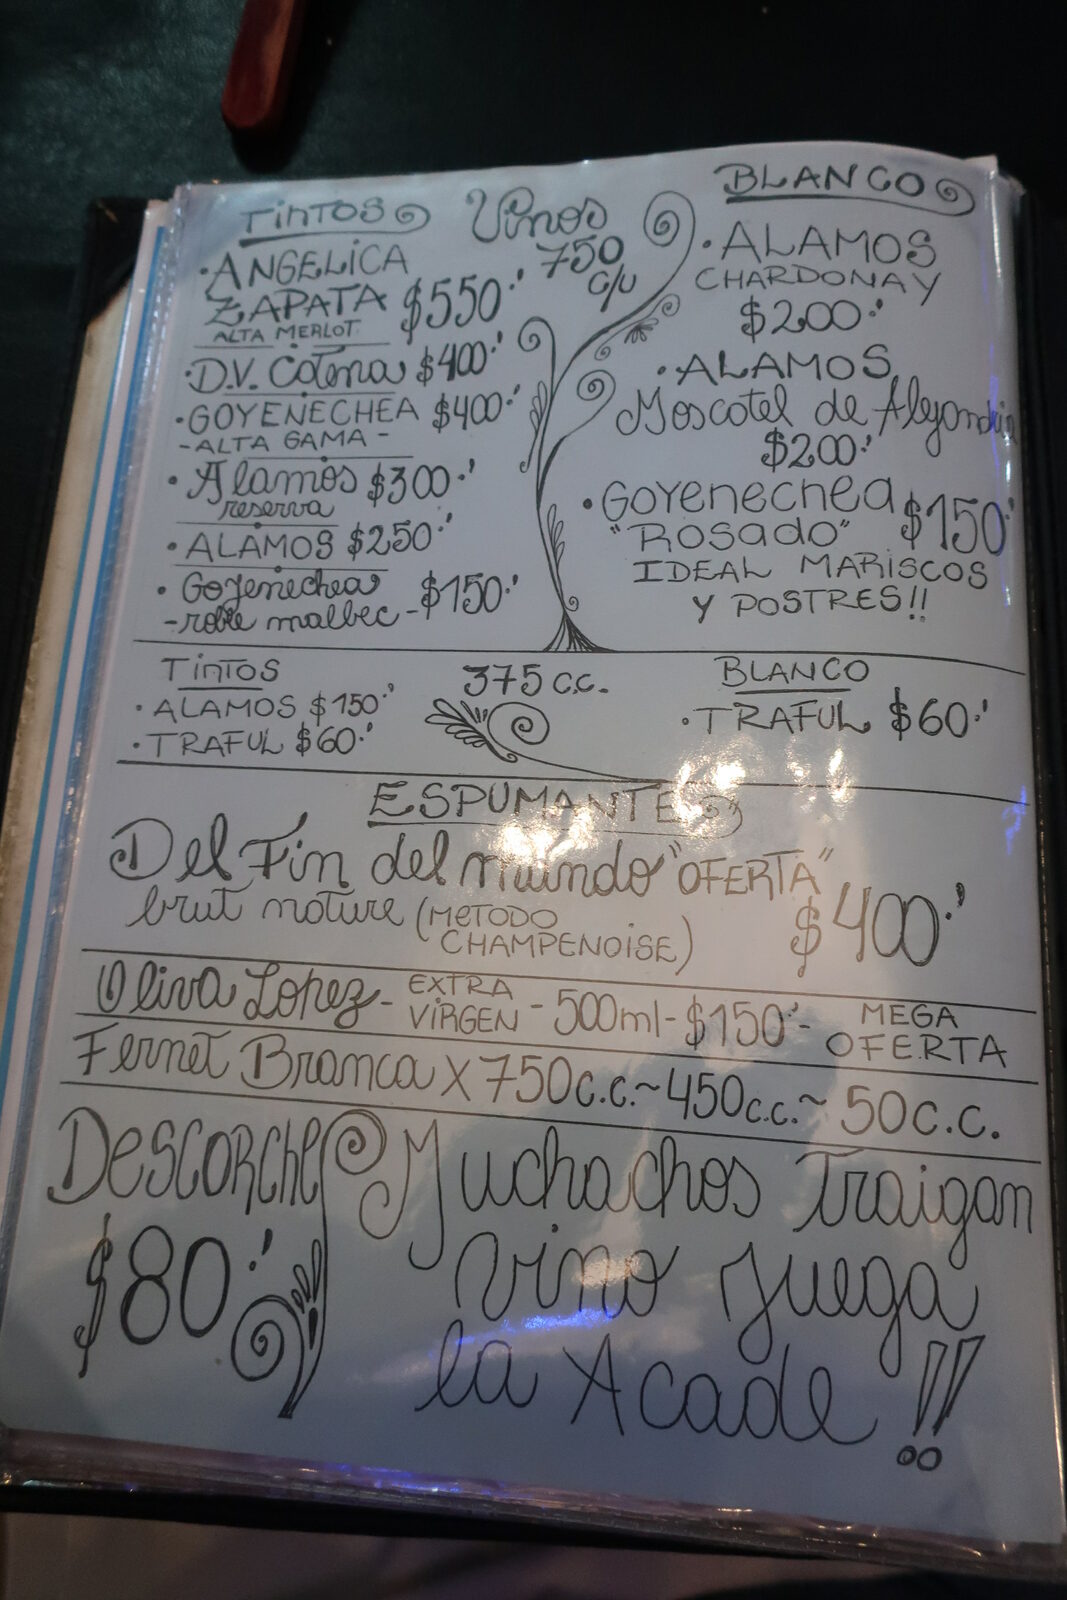 Vinos
750
c/u
TINTOS
·ANGELICA
ZAPATA $550.'
ALTA MERLOT
·D.V. Catena $400.'
·GOYENECHEA $400.'
-ALTA GAMA-
·Alamos $300.'
reserva
·ALAMOS $250.'
·Goyenechea
-roble malbec- $150.'
BLANCO
·ALAMOS
CHARDONAY
$200.'
·ALAMOS
Moscatel de Alejandria
$200.'
·GOYENECHEA
"ROSADO" $150.'
IDEAL MARISCOS
Y POSTRES!!
375 c.c.
TINTOS
·ALAMOS $150.'
·TRAFUL $60.'
BLANCO
·TRAFUL $60.'
ESPUMANTE
Del Fin del mundo "OFERTA"
brut nature (METODO
CHAMPENOISE) $400.'
Oliva Lopez- EXTRA
VIRGEN -500ml-$150.'- MEGA
OFERTA
Fernet Branca X 750c.c.~450c.c.~ 50c.c.
DESCORCHE
$80.'
Muchachos Traigan
vino juega
la Acade!!